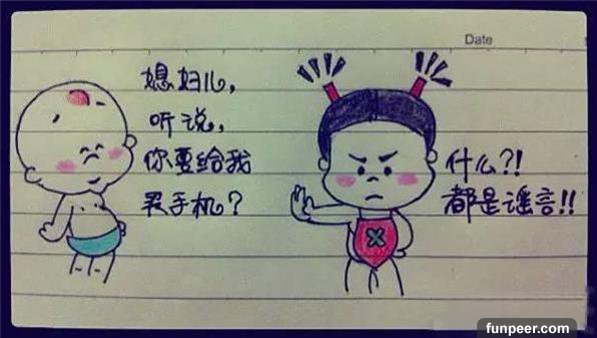 Date
媳妇儿，
听说，
你要给我
买手机？
什么?!
都是谣言!!
funpeer.com